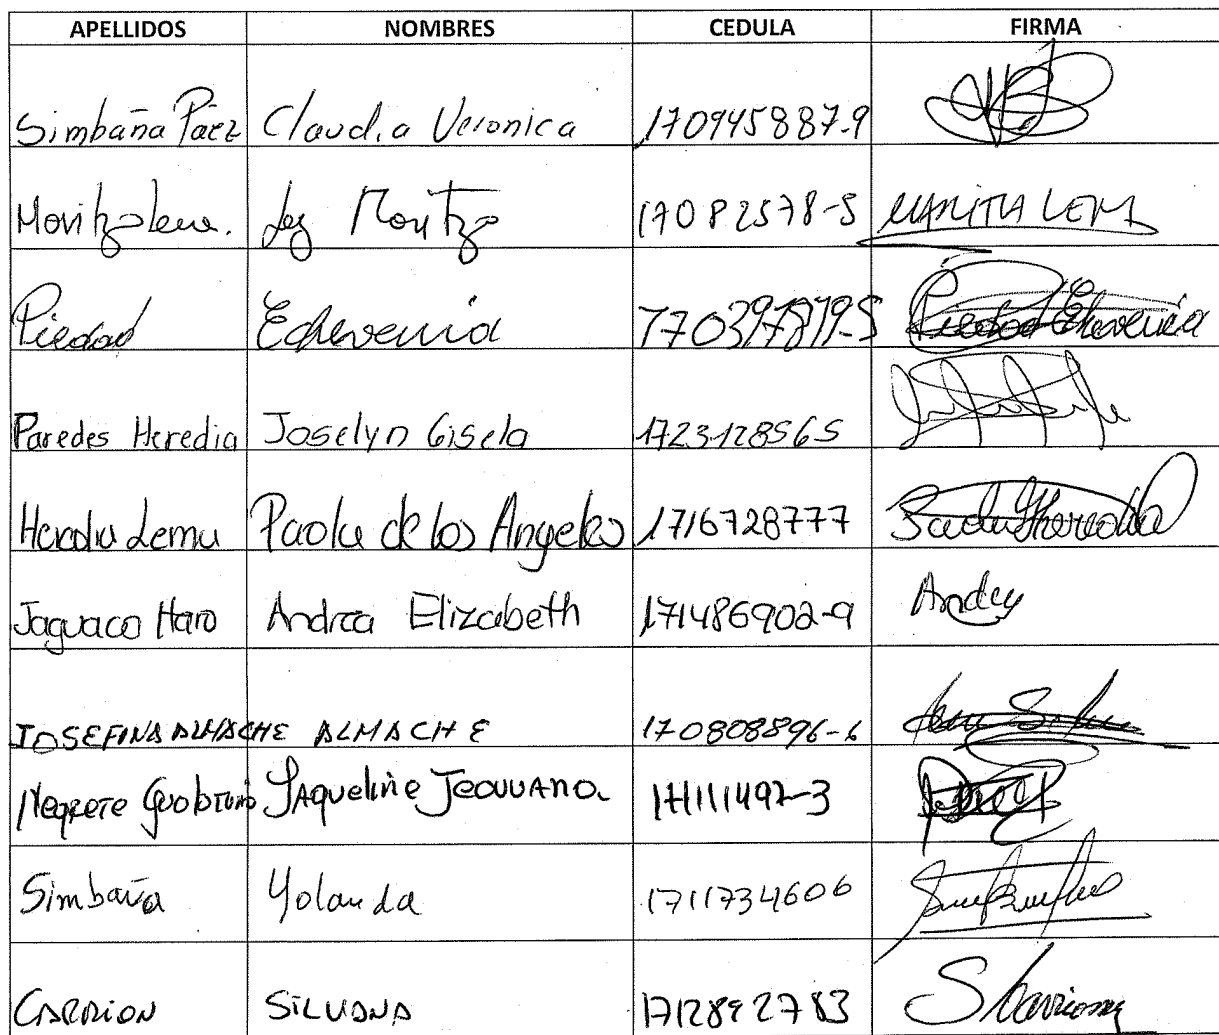 APELLIDOS NOMBRES CEDULA FIRMA
Simbaña Páez Claudia Veronica 170945887-9
17082578-5 MARITZA LEMA
Piedad Echeverria 170397879-5 Piedad Echeverria
Paredes Heredia Joselyn Gisela 1723128565
Heredia Lema Paola de los Angeles 1716728777
Jaguaco Haro Andrea Elizabeth 171486902-9
JOSEFINA ALMACHE ALMACHE 170808896-6
Negrete Jaqueline Jeovvana. 171111497-3
Simbaña Yolanda 1711734606
CARRION SILVANA 1712892783 SCarrion